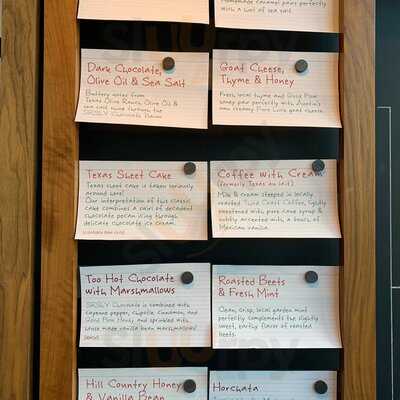 Homemade caramel pairs perfectly
with a hint of sea salt.
Dark Chocolate,
Olive Oil & Sea Salt
Buttery notes from
Texas Olive Ranch Olive Oil &
sea salt
Goat Cheese,
Thyme & Honey
Fresh, local thyme and Good Flow
honey pair perfectly with
own creamy Pure Luck goat cheese.
Texas Sheet Cake
Texas sheet cake is taken seriously
around here!
Our interpretation of this classic
cake combines a pair of decadent
chocolate pecan icing through
delicate chocolate ice cream.
Coffee with Cream
(formerly Texas au lait)
Milk & cream steeped in locally
roasted Third Coast Coffee, lightly
sweetened with pure cane syrup &
subtly accented with a touch of
Mexican vanilla.
Too Hot Chocolate
with Marshmallows
Chocolate is combined with
cayenne pepper, chipotle, cinnamon, and
Good Flow Honey and sprinkled with
house made vanilla bean marshmallows!
Roasted Beets
& Fresh Mint
Clean, crisp, local garden mint
perfectly complements the slightly
sweet, earthy flavor of roasted
beets.
Hill Country Honey
& Vanilla Bean
Horchata